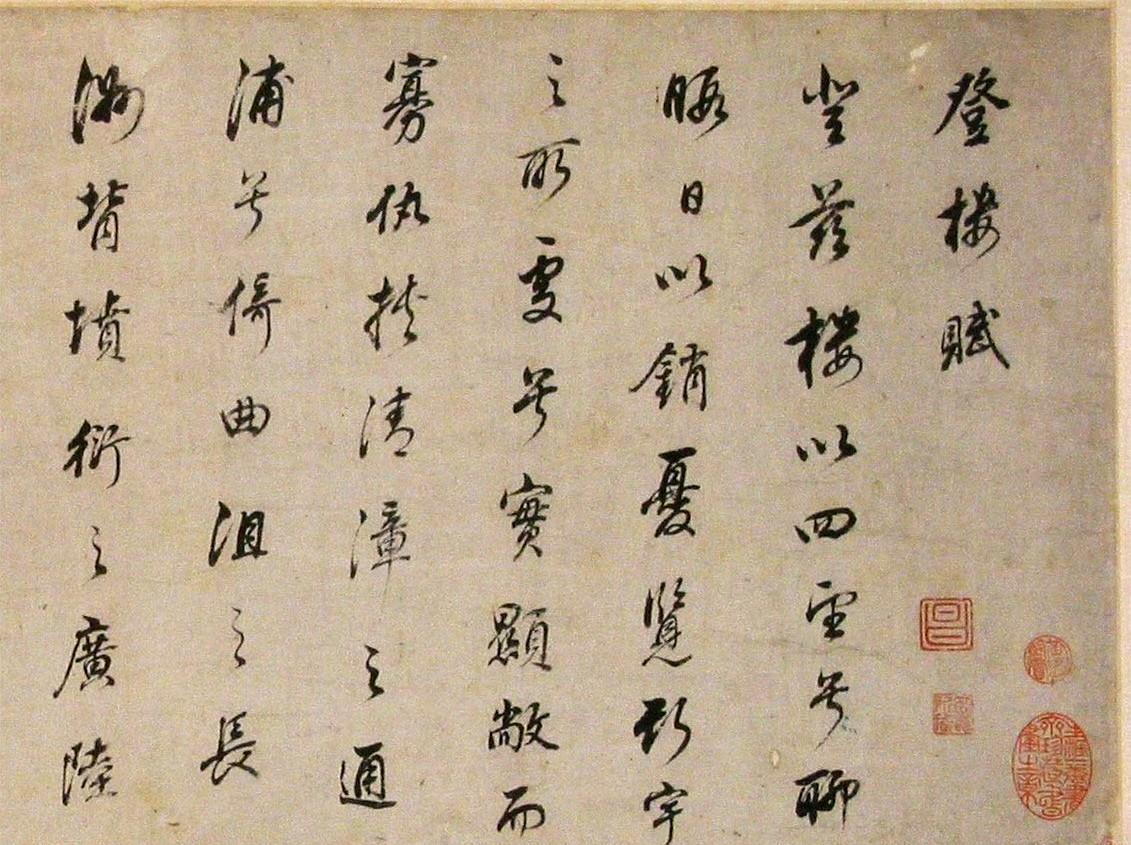 登樓賦
登茲樓以四望兮聊
暇日以銷憂覽斯宇
之所處兮實顯敞而
寡仇挾清漳之通
浦兮倚曲沮之長
洲背墳衍之廣陸